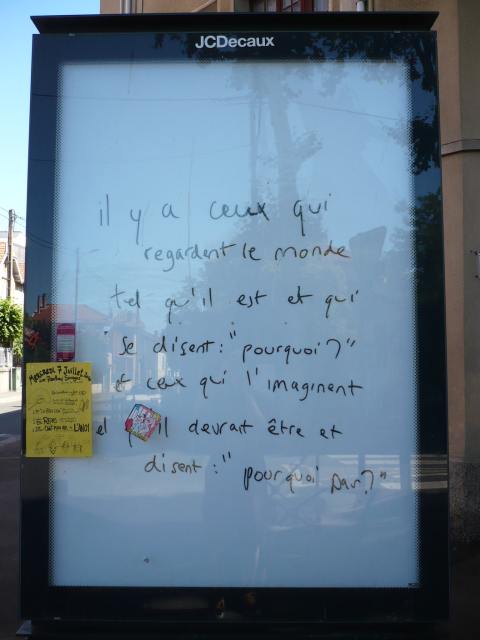 JCDecaux
il y a ceux qui
regardent le monde
tel qu'il est et qui
se disent : "pourquoi ?"
et ceux qui l'imaginent
el il devrait être et
disent : "
pourquoi pas ?"
Mercredi 7 Juillet